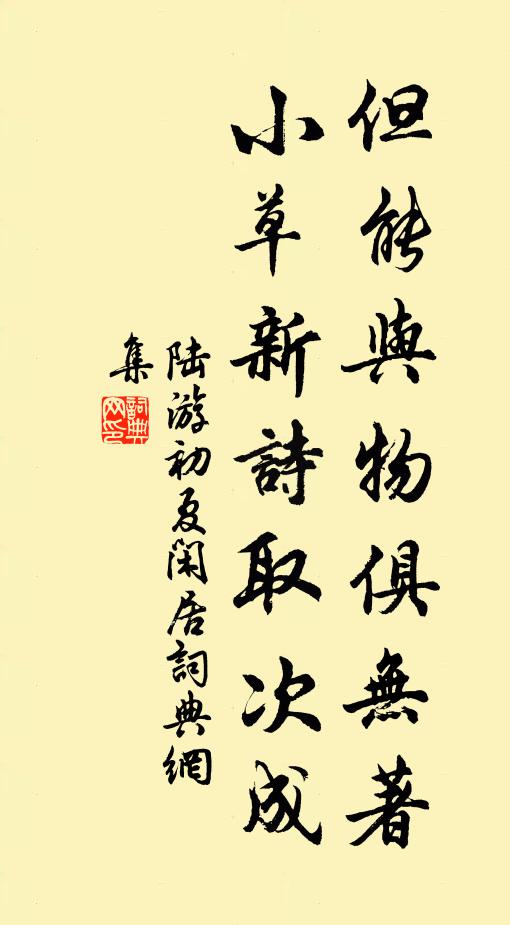 但能與物俱無著
小草新詩取次成
陆游初夏閑居詞典網
集
詞典
网印